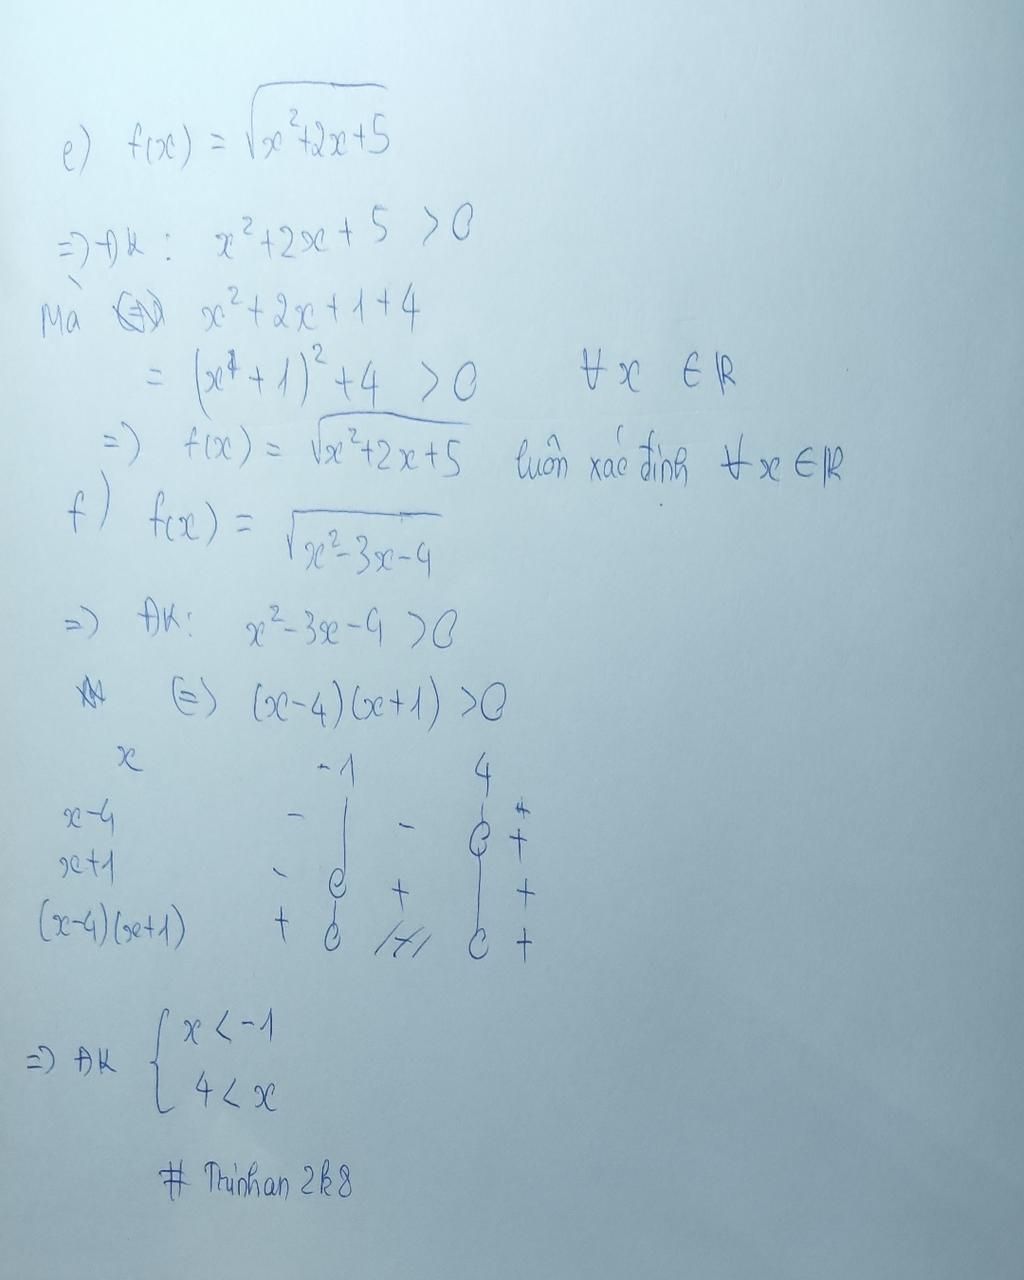 e) f(x) = √x²+2x+5
=> ĐK : x²+2x+5 >0
Mà x²+2x+1+4
= (x+1)²+4 >0 ∀x ∈ℝ
=> f(x) = √x²+2x+5 luôn xác định ∀x∈ℝ
f) f(x) = √x²-3x-4
=> ĐK: x²-3x-4 >0
(=) (x-4)(x+1) >0
x -1 4
x-4 - | - 0 +
x+1 - 0 + | +
(x-4)(x+1) + 0 /// 0 +
=> ĐK { x < -1
4 < x
# Trinhan 2k8